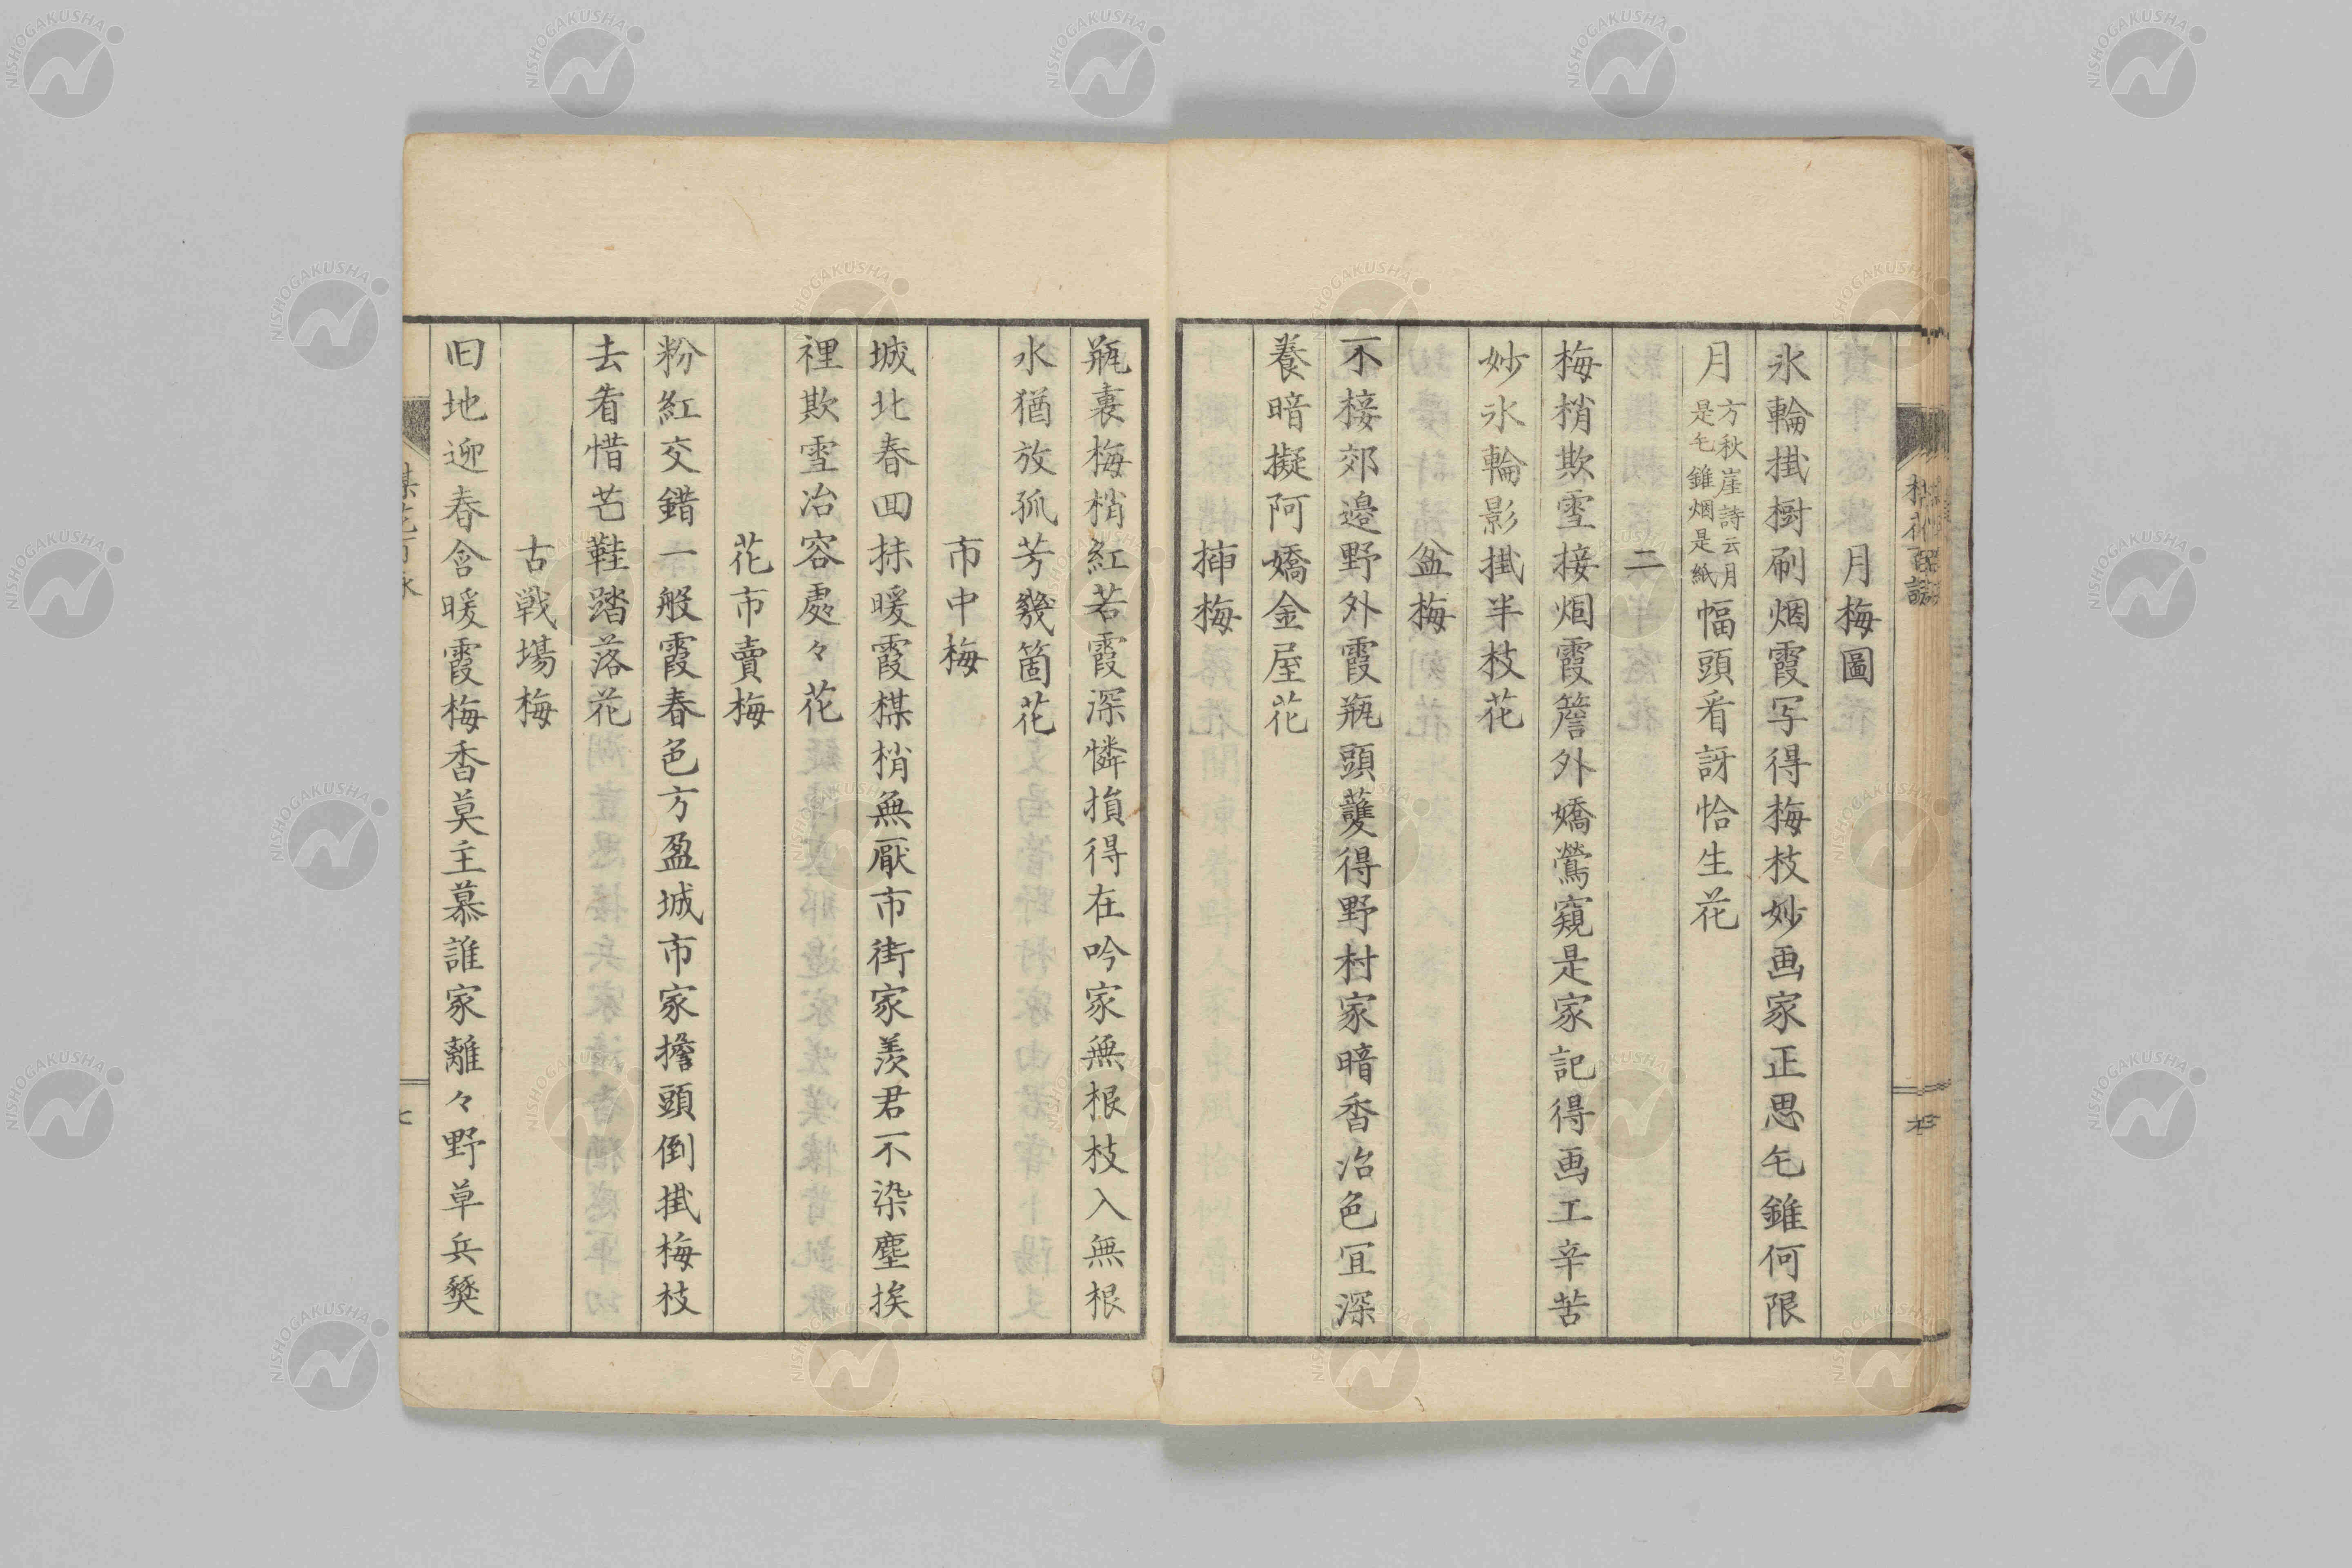 月梅圖
氷輪掛樹刷烟霞写得梅枝妙画家正思乇錐何限
月方秋崖詩云月是乇錐烟是紙幅頭看訝恰生花
二
梅梢欺雪接烟霞簷外嬌鶯窺是家記得画工辛苦
妙氷輪影掛半枝花
盆梅
不接郊邉野外霞瓶頭蘷得野村家暗香冶色冝深
養暗擬阿嬌金屋花
挿梅
瓶裏梅梢紅若霞深憐損得在吟家無根枝入無根
水猶放孤芳幾箇花
市中梅
城北春回抹暖霞楳梢無厭市街家羨君不染塵挨
裡欺雪冶容處々花
花市賣梅
粉紅交錯一般霞春色方盈城市家擔頭倒掛梅枝
去看惜芒鞋踏落花
古戦場梅
旧地迎春含暖霞梅香莫主慕誰家離々野草兵
NISHOGAKUSHA